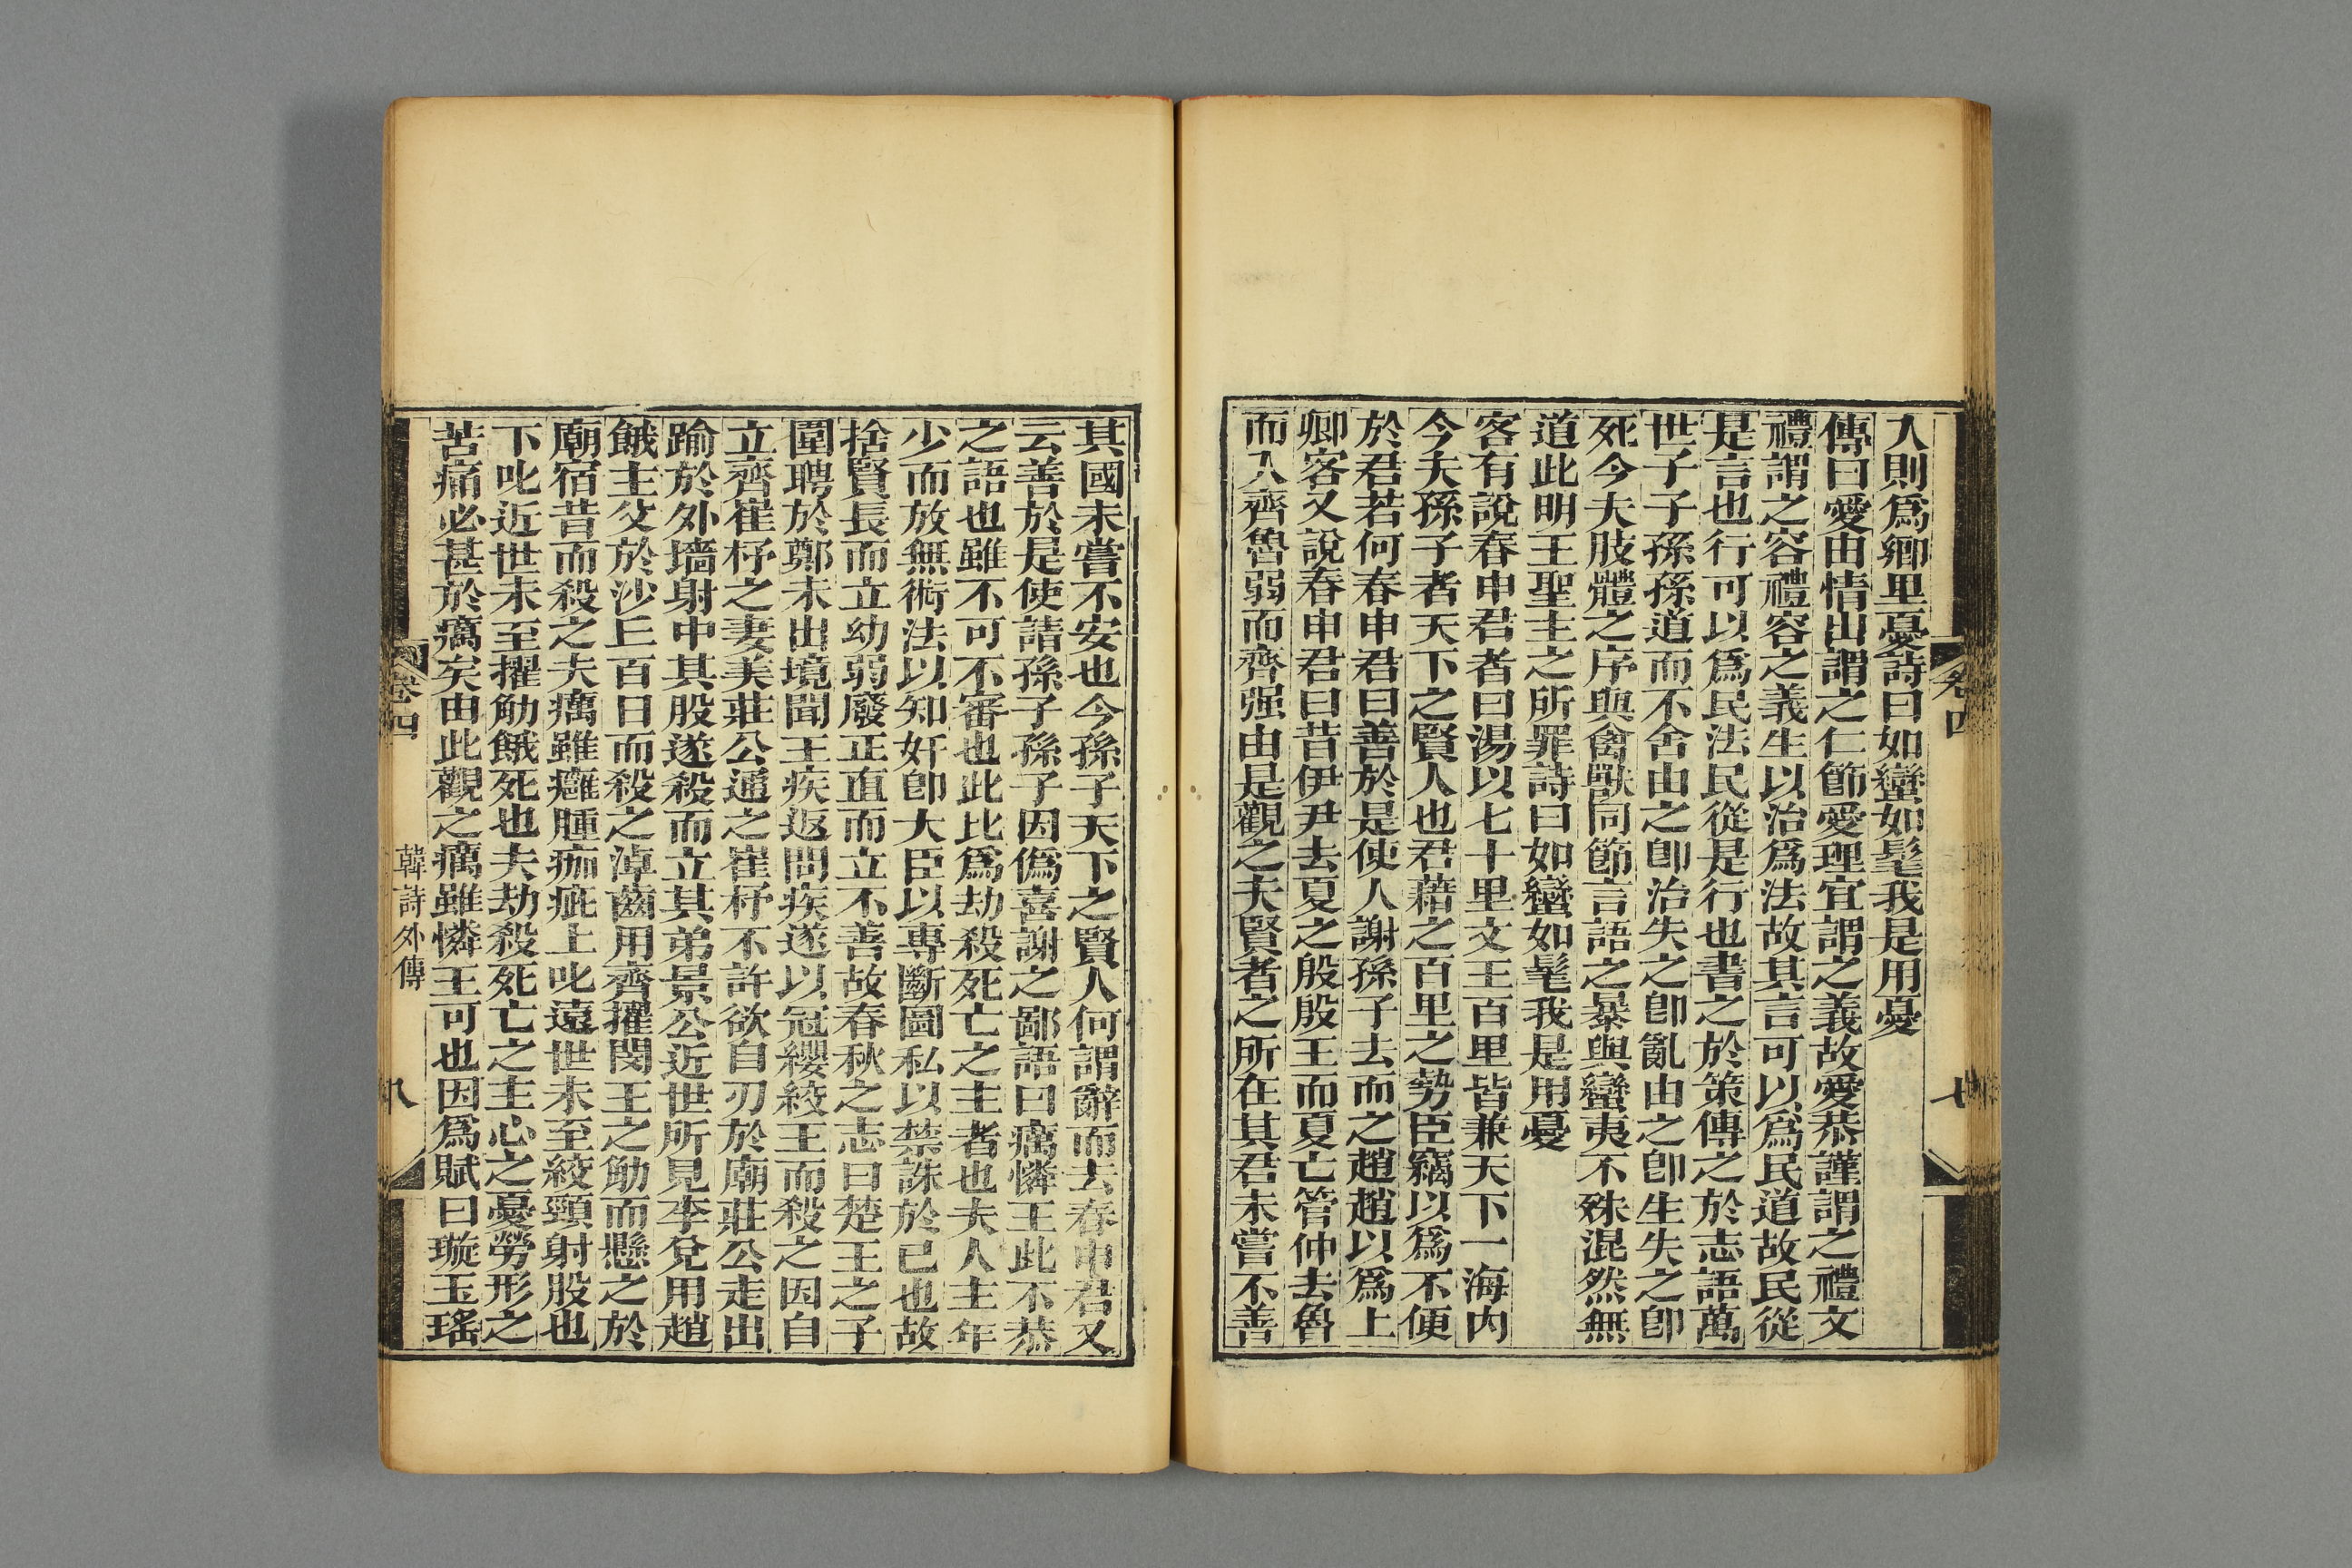 入則爲鄉里憂詩曰如蠻如髦我是用憂
傳曰愛由情出謂之仁節愛理宜謂之義故愛恭謹謂之禮文
禮謂之容禮容之義生以治爲法故其言可以爲民道故民從
是言也行可以爲民法民從是行也書之於策傳之於志語萬
世子子孫孫道而不舍由之卽治失之卽亂由之卽生失之卽
死今夫肢體之序與禽獸同節言語之暴與蠻夷不殊混然無
道此明王聖主之所罪詩曰如蠻如髦我是用憂
客有說春申君者曰湯以七十里文王百里皆兼天下一海內
今夫孫子者天下之賢人也君藉之百里之勢臣竊以爲不便
於君若何春申君曰善於是使人謝孫子去而之趙趙以爲上
卿客又說春申君曰昔伊尹去夏之殷殷王而夏亡管仲去魯
而入齊魯弱而齊强由是觀之夫賢者之所在其君未嘗不善
卷四
七
其國未嘗不安也今孫子天下之賢人何謂辭而去春申君又
云善於是使請孫子孫子因僞喜謝之鄙語曰癘憐王此不恭
之語也雖不可不審也此比爲劫殺死亡之主者也夫人主年
少而放無術法以知奸卽大臣以專斷圖私以禁誅於已也故
捨賢長而立幼弱廢正直而立不善故春秋之志曰楚王之子
圍聘於鄭未出境聞王疾返問疾遂以冠纓絞王而殺之因自
立齊崔杼之妻美莊公通之崔杼不許欲自刃於廟莊公走出
踰於外墻射中其股遂殺而立其弟景公近世所見李兌用趙
餓主父於沙丘百日而殺之淖齒用齊擢閔王之觔而懸之於
廟宿昔而殺之夫癘雖癰腫痂疵上比遠世未至絞頸射股也
下比近世未至擢觔餓死也夫劫殺死亡之主心之憂勞形之
苦痛必甚於癘矣由此觀之癘雖憐王可也因爲賦曰璇玉瑤
卷四
韓詩外傳
八